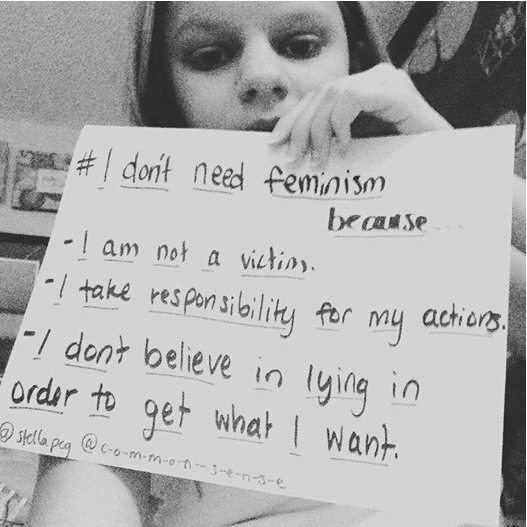 # I don't need feminism
because...
- I am not a victim.
- I take responsibility for my actions.
- I don't believe in lying in
order to get what I want.
@stellapcg @c-o-m-m-o-n--s-e-n-s-e